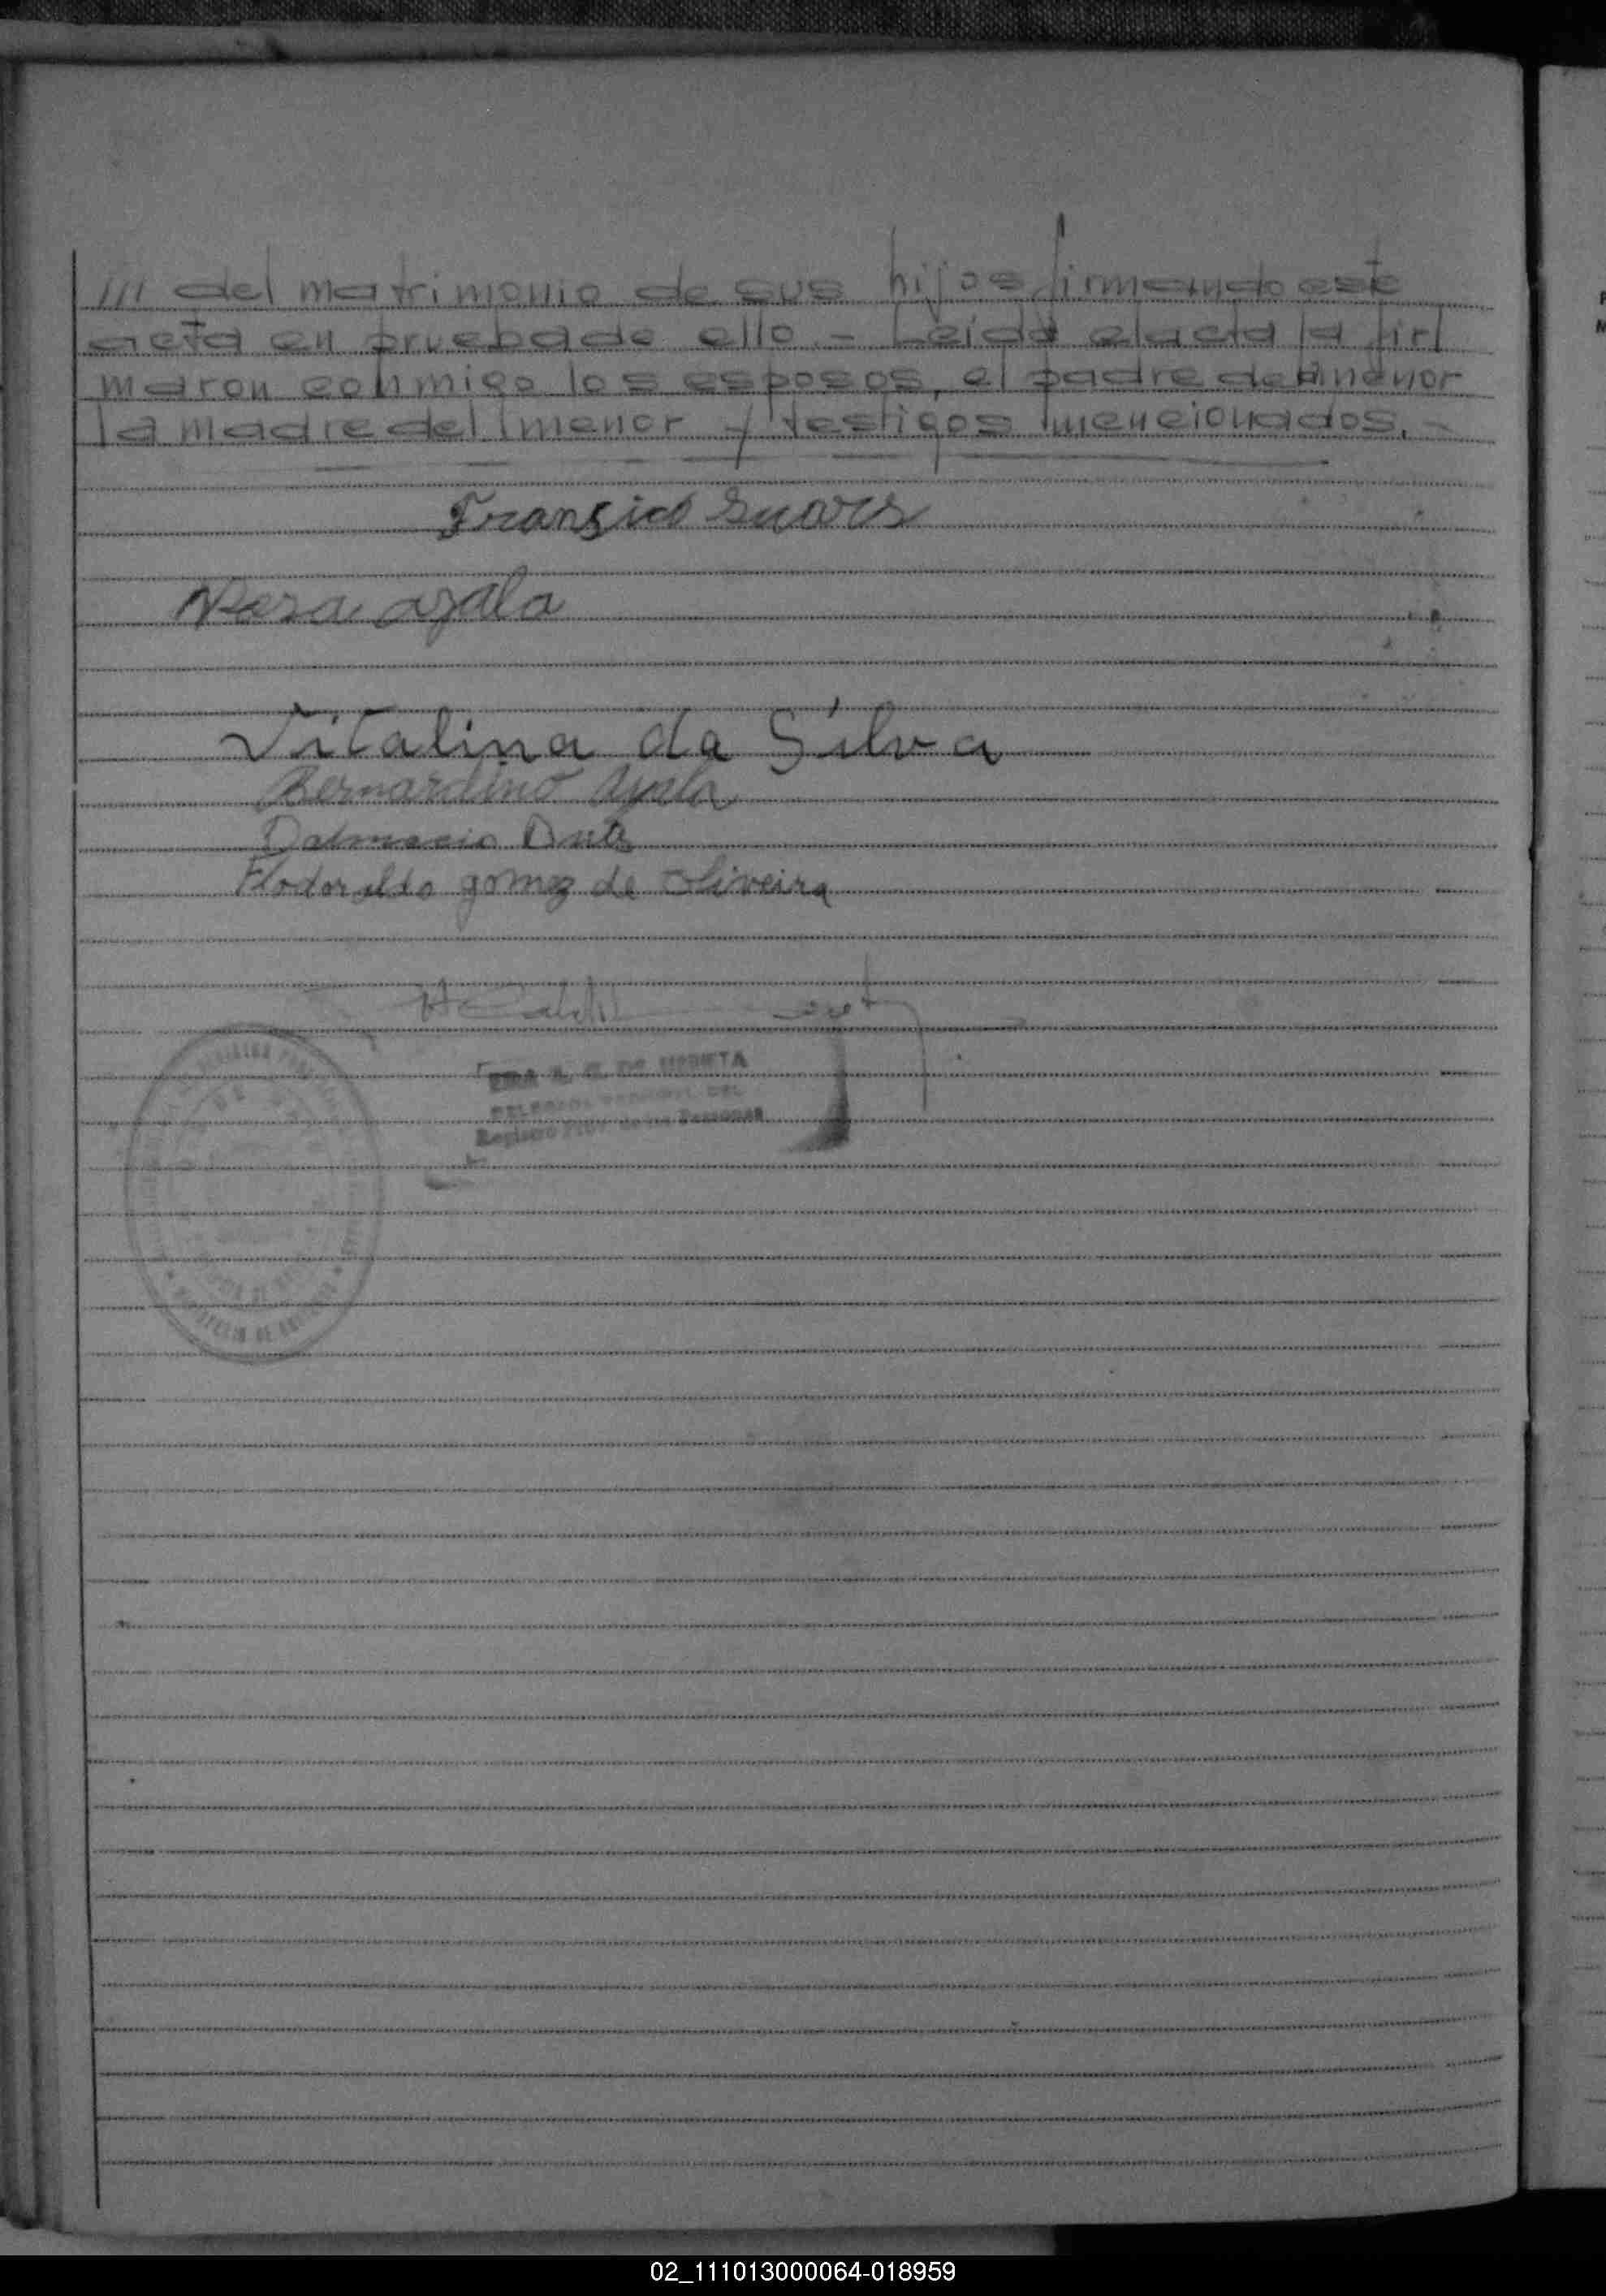 /// del matrimonio de sus hijos firmando este
acta en prueba de ello. - Leida el acta la fir/
maron conmigo los esposos, el padre de menor
la madre del menor y testigos mencionados. -
Fransico Suares
ayala
Vitalina da Silva
Bernardino Ayala
Dalmacio
Flodoraldo gomez de Oliveira
DE URRIETA
DEL
Registro de las Personas
02_111013000064-018959